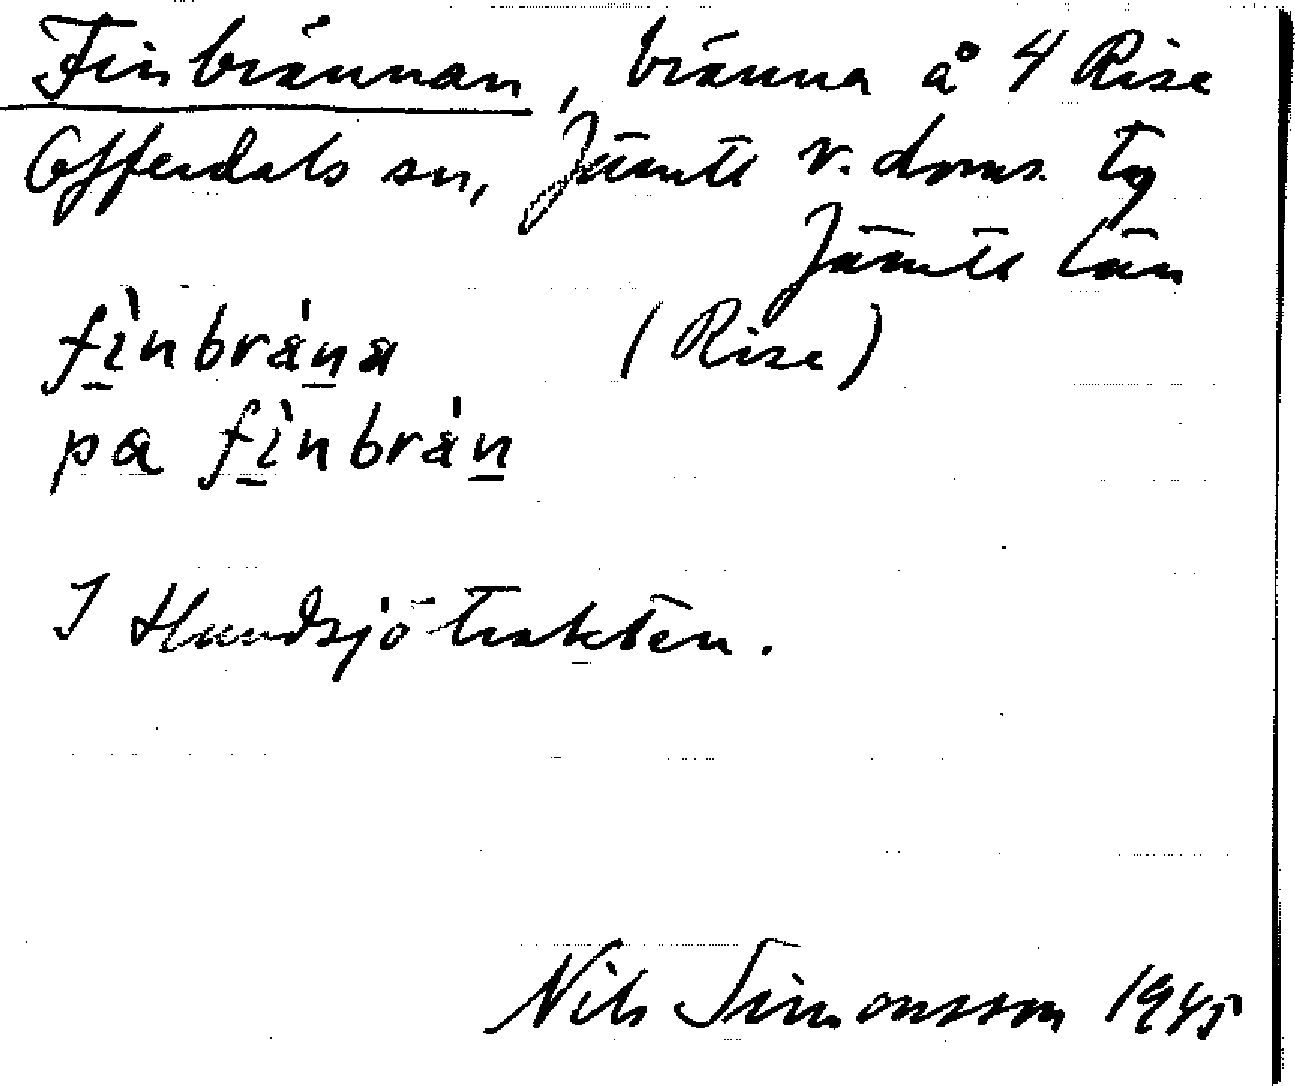 Finbrännan, bränna å 4 Rise
Offerdals sn, Jämtl v. doms. tg
Jämtl län
fìnbrána (Rise)
pa fìnbrán
I Hundsjötrakten.
Nils Simonsson 1945